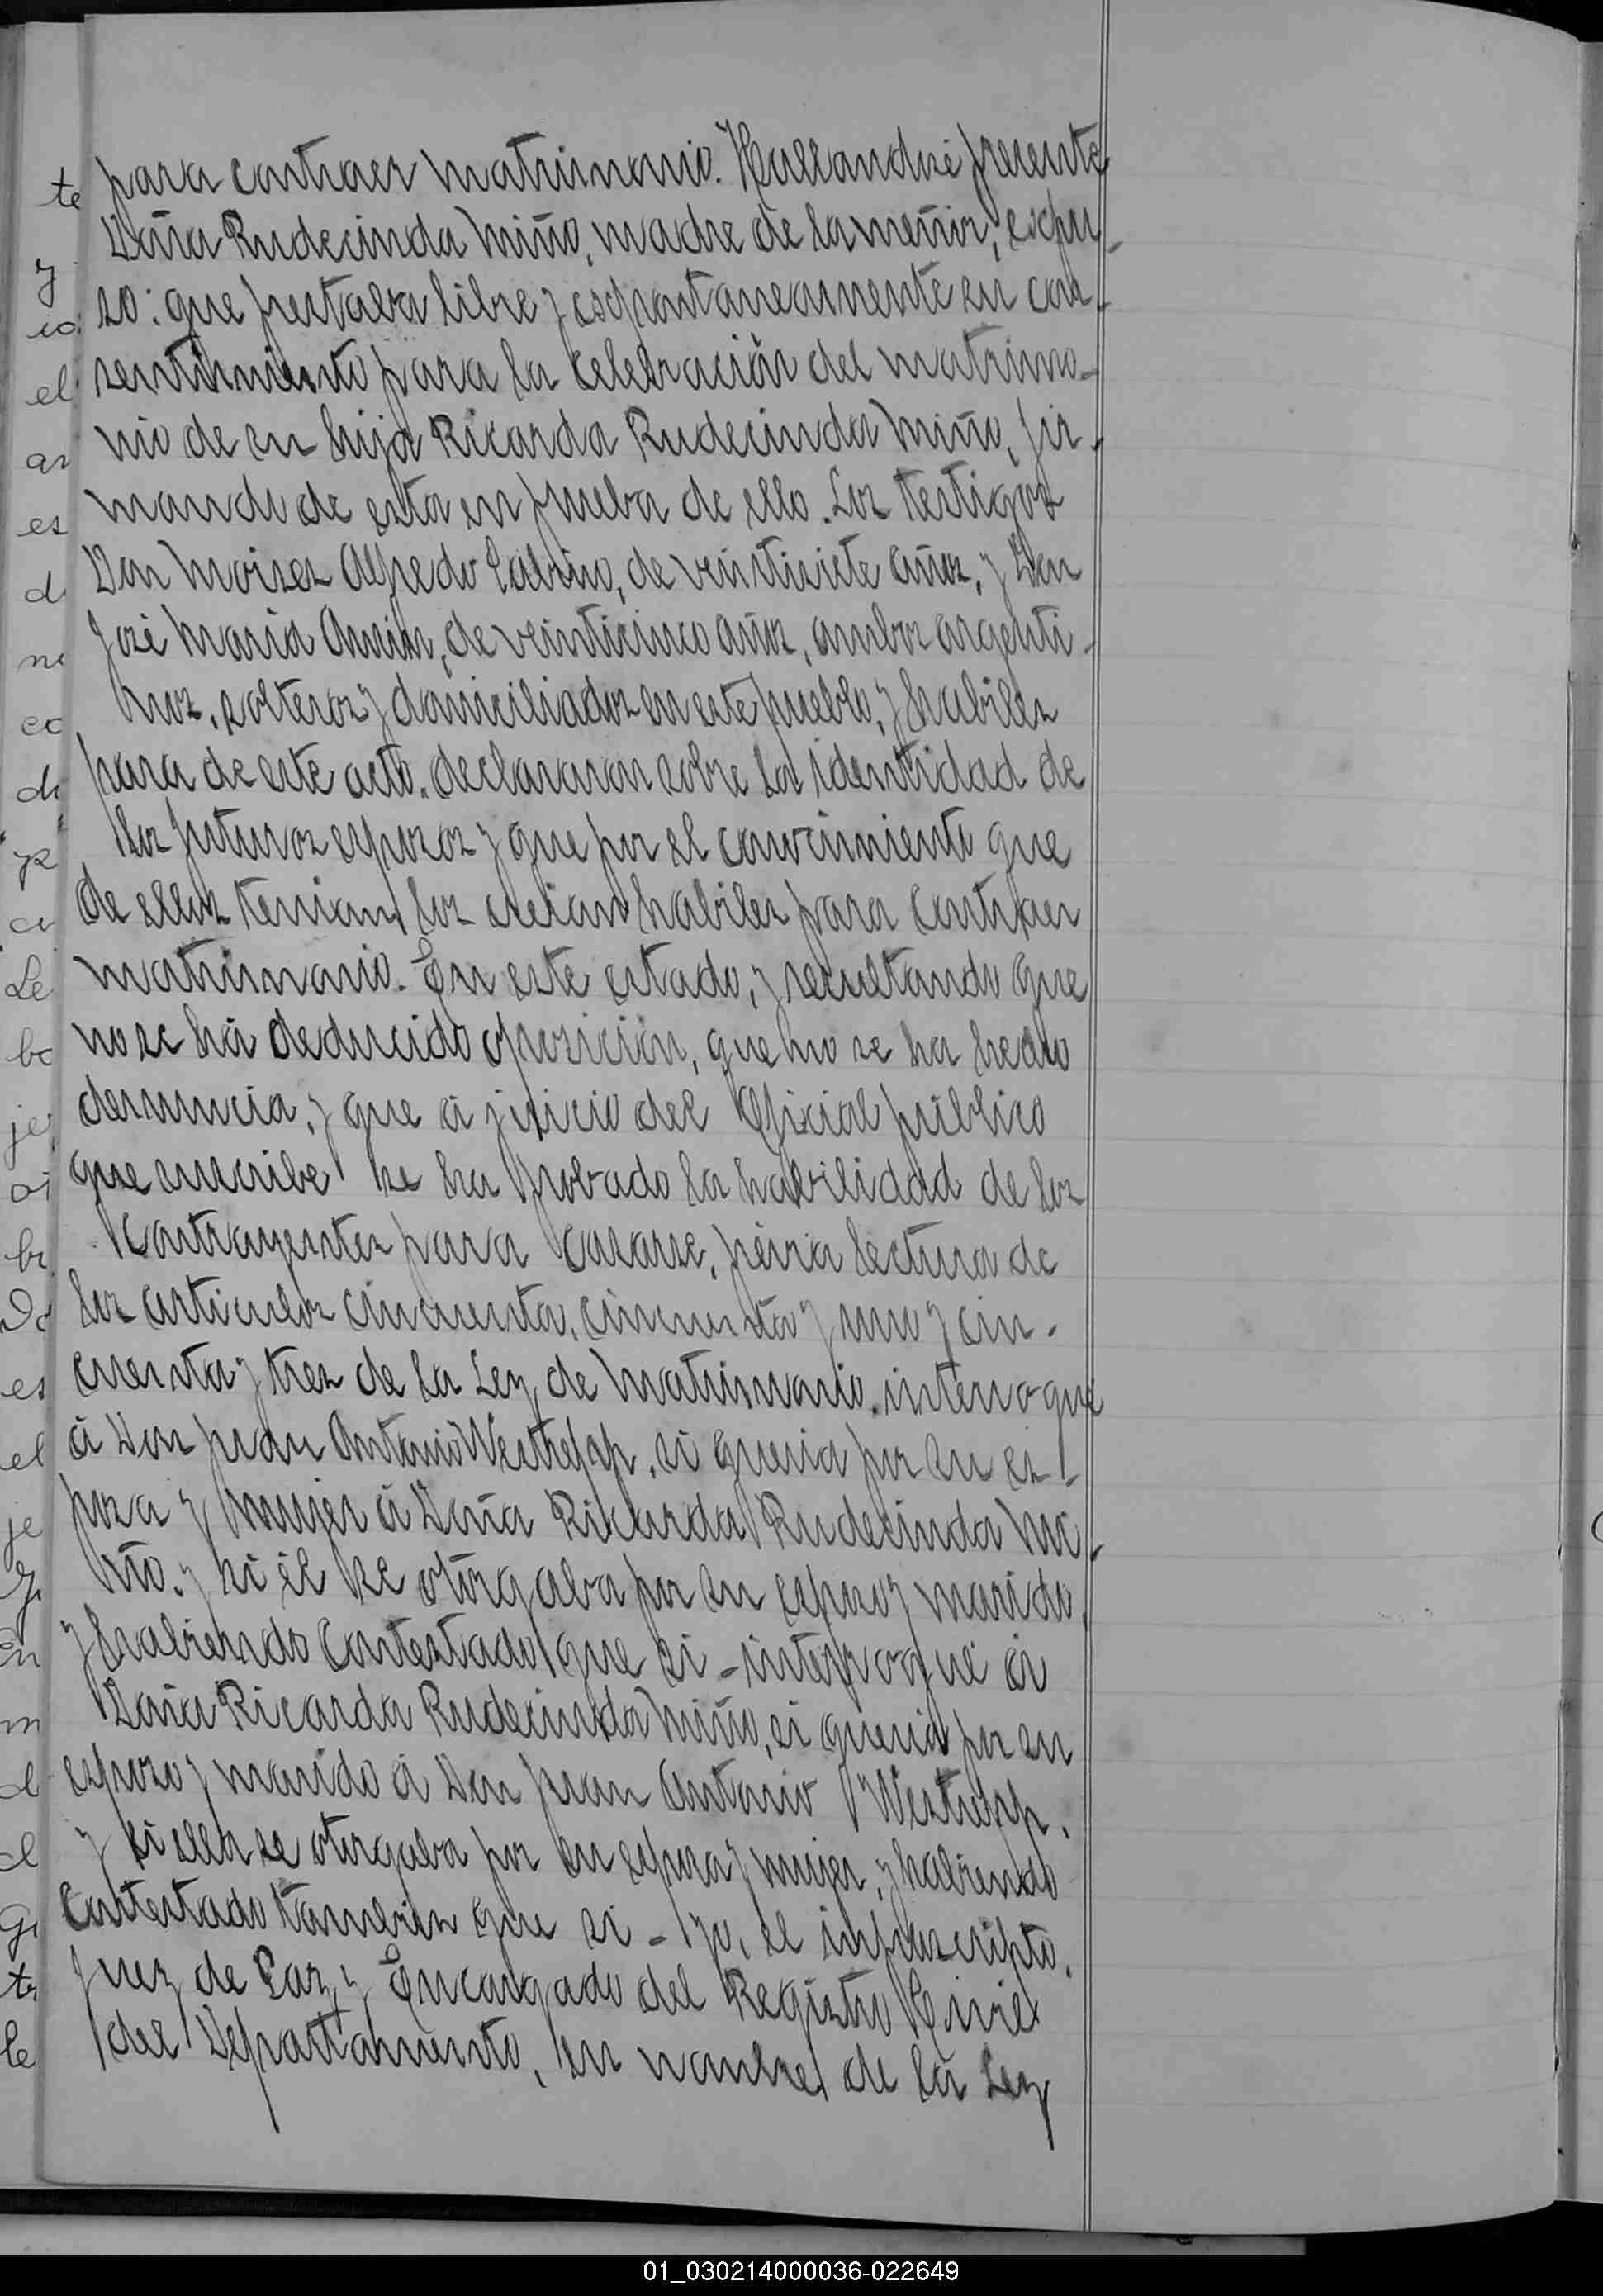 para contraer matrimonio. Hallandose presente
Doña Rudecinda Miño, madre de la menor, espu-
so: que prestaba libre y espontaneamente su con-
sentimiento para la celebración del matrimo-
nio de su hija Ricarda Rudecinda Miño, fir-
mando de esta en prueba de ello. Los testigos
Don Moises Alfredo Labrino, de veintisiete años, y Don
José Maria Amim, de veinticinco años, ambos argenti-
nos, solteros y domiciliados en este pueblo, y habiles
para de este acto. declararon sobre la identidad de
los futuros esposos y que por el conocimiento que
de ellos tenian, los creian habiles para contraer
matrimonio. En este estado, y resultando que
no se há deducido oposición, que no se ha hecho
denuncia, y que á juicio del Oficial público
que suscribe se ha probado la habilidad de los
contrayentes para casarse, previa lectura de
los articulos cincuenta, cincuenta y uno y cin-
cuenta y tres de la Ley de Matrimonio. interrogué
á Don Juan Antonio Westrelpp, si queria por su es-
posa y mujer á Doña Ricarda Rudecinda Mi-
ño. y si él se otorgaba por su esposo y marido,
y habiendo contestado que si - interrogué á
Doña Ricarda Rudecinda Miño, si queria por su
esposo y marido á Don Juan Antonio Westrelpp,
y si ella se otorgaba por su esposa y mujer, y habiendo
contestado tambien que si - yo, el infrascripto,
Juez de Paz, y Encargado del Registro Civil
del Departamento, en nombre de la Ley
01_030214000036-022649